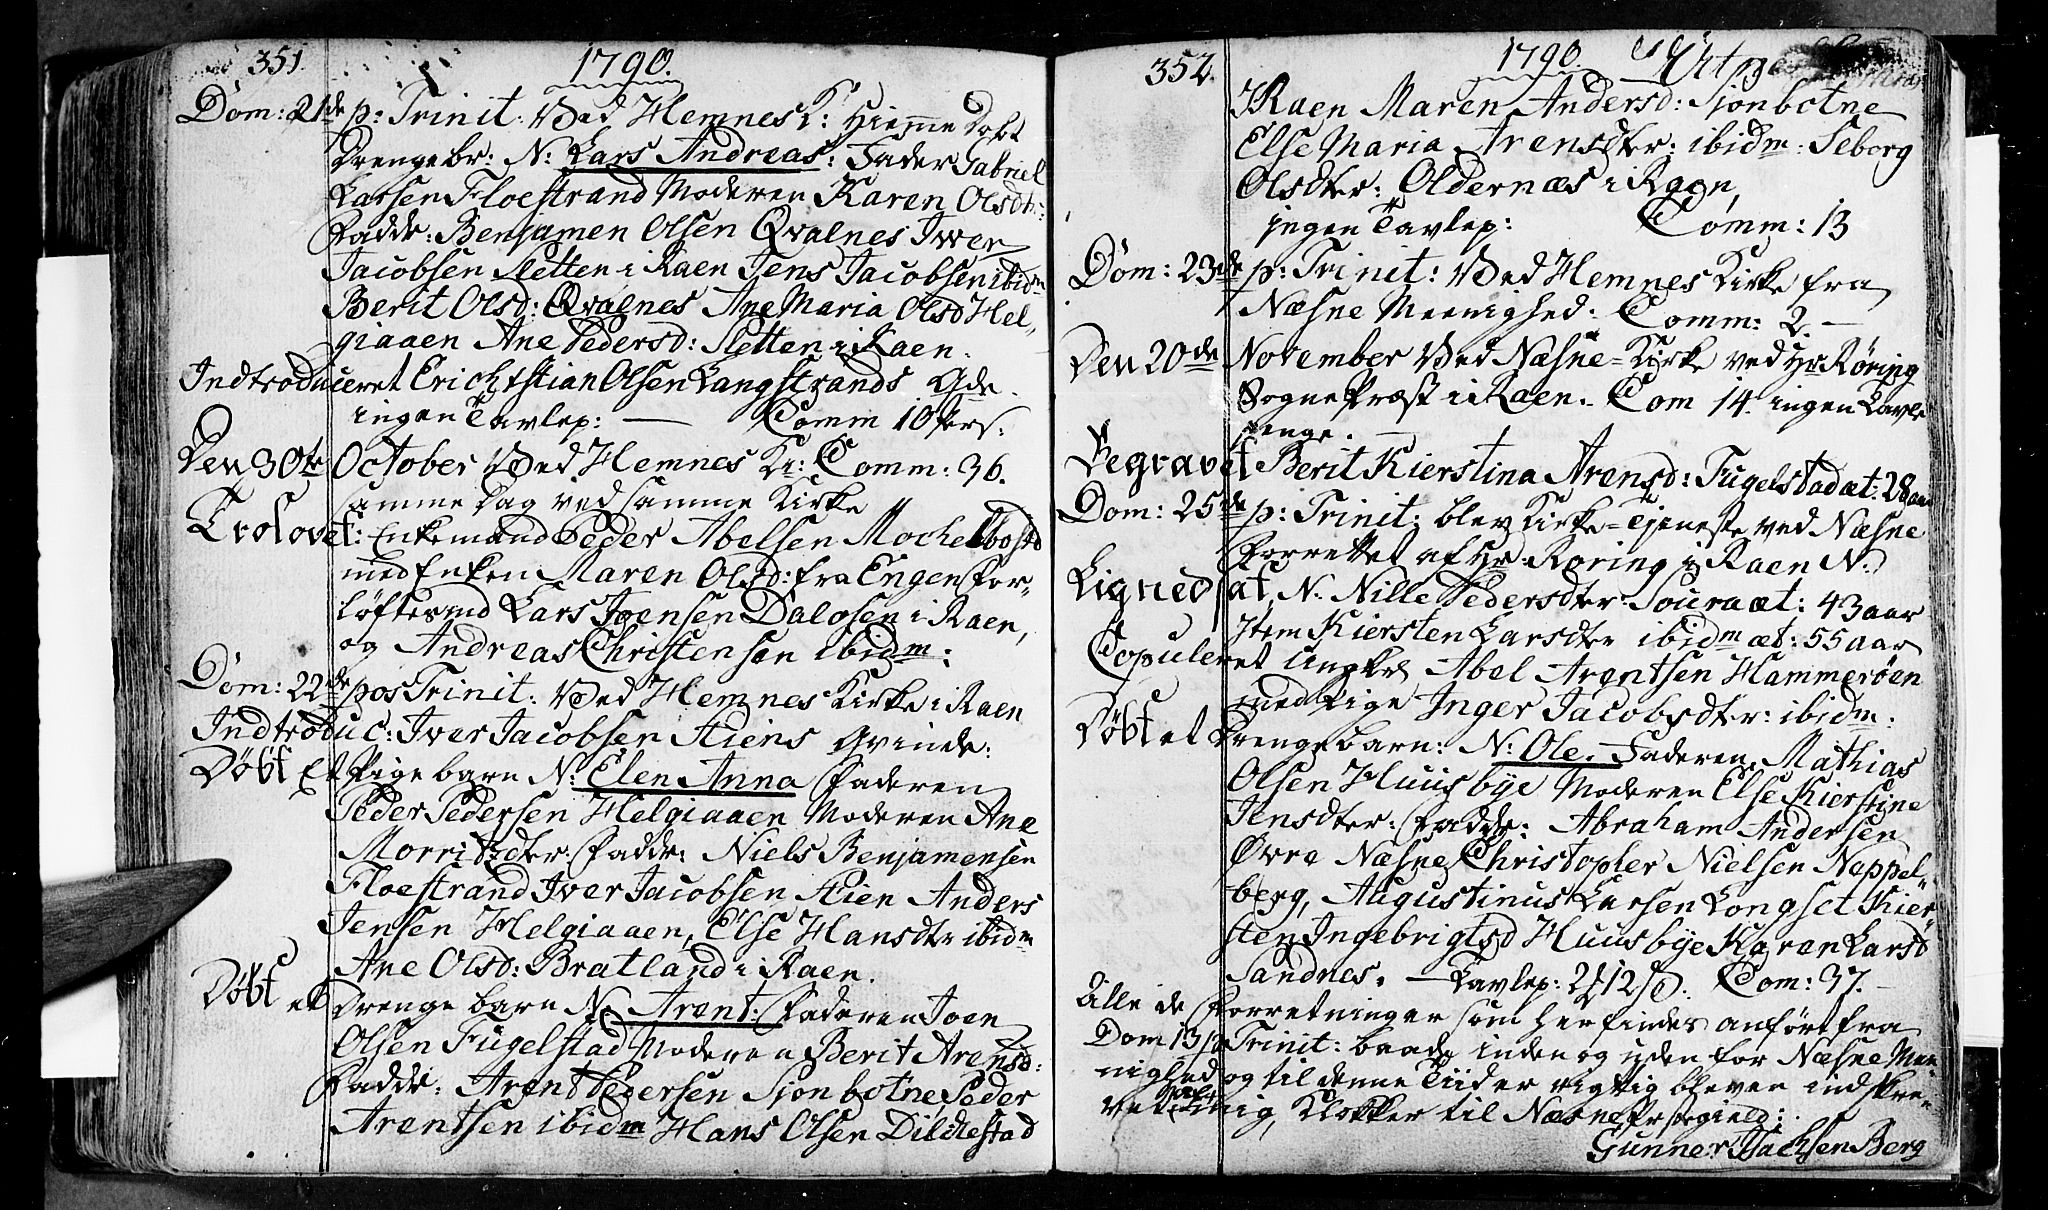 351.
1790.
Dom: 21de p: Trinit: Ved Hemnes K: Hiemme Døbt
Drengebr: N: Lars Andreas: Fader Gabriel
Larsen Floestrand Moderen Karen Olsdtr:
Fadde: Benjamen Olsen Qvalnes Iver
Jacobsen Sletten i Raen Jens Jacobsen ibidm
Berit Olsd: Qvalnes Ane Maria Olsd Hel-
giaaen Ane Pedersd: Sletten i Raen.
Indtroduceret Erichstian Olsen Langstrands Qde.
ingen Tavlep: — Comm 10 Pers:
Den 30te October Ved Hemnes K: Comm: 36.
samme Dag ved samme Kirke
Trolovet: Enkemand Peder Abelsen Mochelbostd
med Enken Maren Olsd: fra Engen for-
løftesmd Lars Joensen Dalosen i Raen,
og Andreas Christensen ibidm:
Dom: 22de pos Trinit: Ved Hemnes Kirke i Raen
Indtroduc: Iver Jacobsen Stiens Qvinde:
Døbt Et Pigebarn N: Elen Anna Faderen
Peder Pedersen Helgiaaen Moderen Ane
Morritzdter: Fadde: Niels Benjamensen
Floestrand Iver Jacobsen Stien Anders
Jensen Helgiaaen, Else Hansdtr ibidm
Ane Olsd: Bratland i Raen.
Døbt et Drenge barn N: Arent: Faderen Joen
Olsen Fugelstad Moderen Berit Arensd:
Fadde: Arent Pedersen Sjonbotne Peder
Arentsen ibidm Hans Olsen Dilchestad
352.
1790
i Raen Maren Andersd: Sjonbotne
Else Maria Arensdter: ibidm: Seborg
Olsdter: Oldernæs i Raen,
ingen Tavlep: Comm: 13
Dom: 23de p: Trinit: Ved Hemnes Kirke fra
Næsne Meenighed. Comm: 2. —
Den 20de November Ved Næsne Kirke ved Hr Røring
Sogne Præst i Raen. Com 14. ingen Tavle
penge. —
Begravet Berit Kierstina Arensd: Fugelstad æt: 28 aar
Dom: 25de p: Trinit: blev Kirke-Tjeneste ved Næsne
forrettet af Hr Røring i Raen N:
Lignedsat, N: Nille Pedersdter Soura æt: 43 aar
Item Kiersten Larsdter ibidm æt: 55 aar
Copuleret Ungkl Abel Arentsen Hammerøen
med Pige Inger Jacobsdter: ibidm:
Døbt et Drengebarn: N: Ole. Faderen Mathias
Olsen Huusbye Moderen Else Kierstine
Jensdter: Fadde: Abraham Andersen
Øvre Næsne Christopher Nielsen Neppel-
berg, Augustinus Larsen Longset Kier-
sten Ingebrigtsd Huusbye Karen Larsd
Sandnes. — Tavlep: 2 12 ß. Com: 37. —
Alle de Forretninger som her findes anført fra
Dom 13 p Trinit: baade inden og uden for Næsne Mee-
nighed og til denne Tiid er rigtig bleven indskre-
vet af mig, Klokker til Næsne Præstegield:
Gunner Isachsen Berg